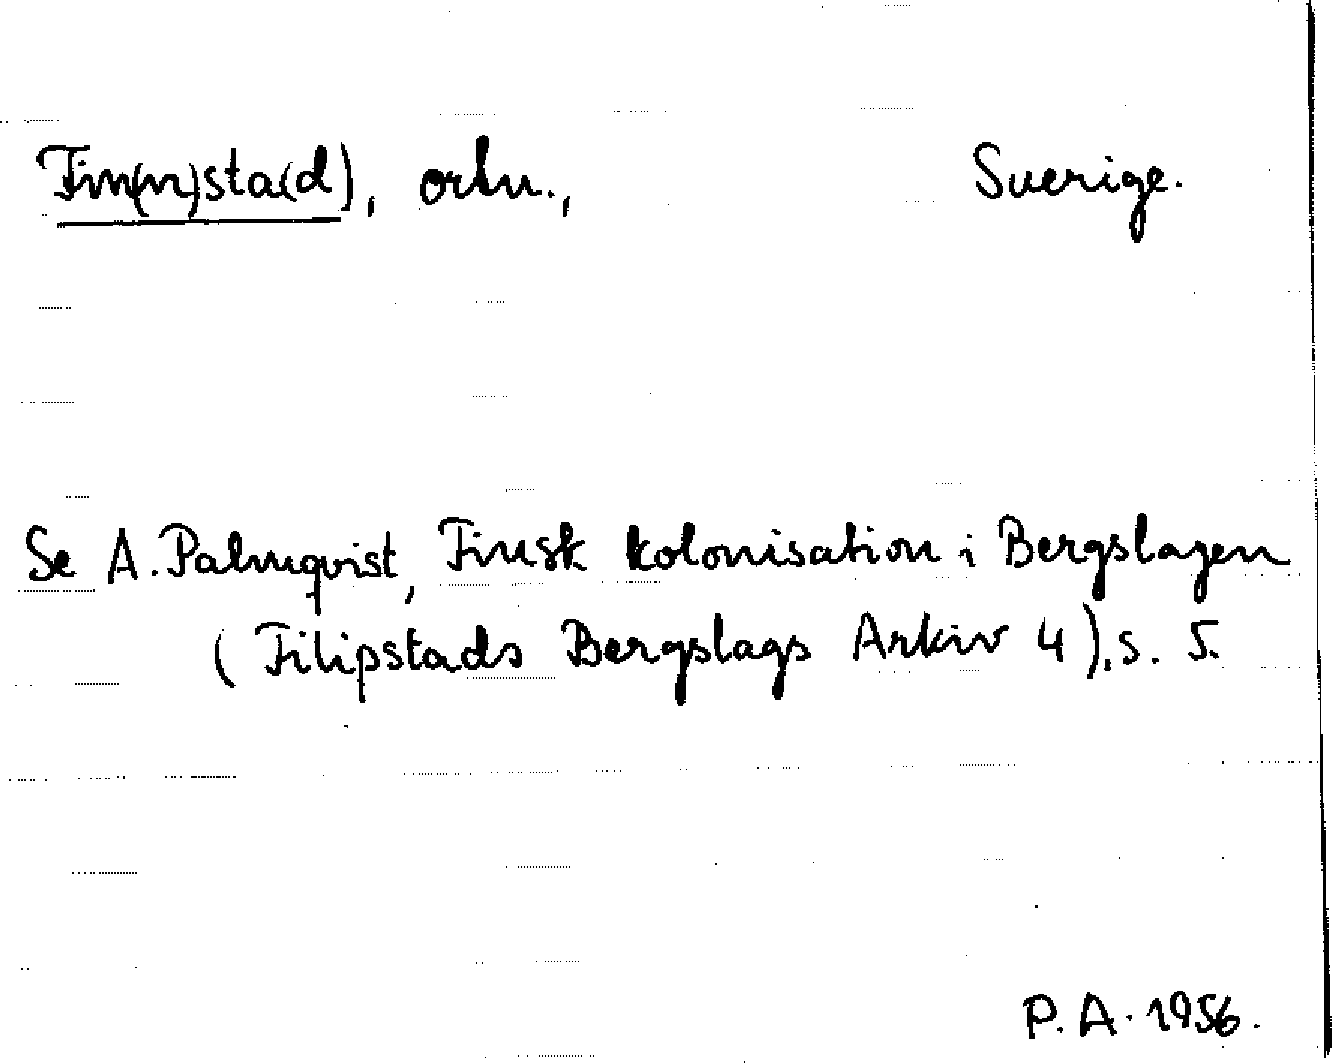 Fin(n)sta(d), ortn., Sverige.
Se A. Palmqvist, Finsk kolonisation i Bergslagen
(Filipstads Bergslags Arkiv 4), s. 5.
P. A. 1956.